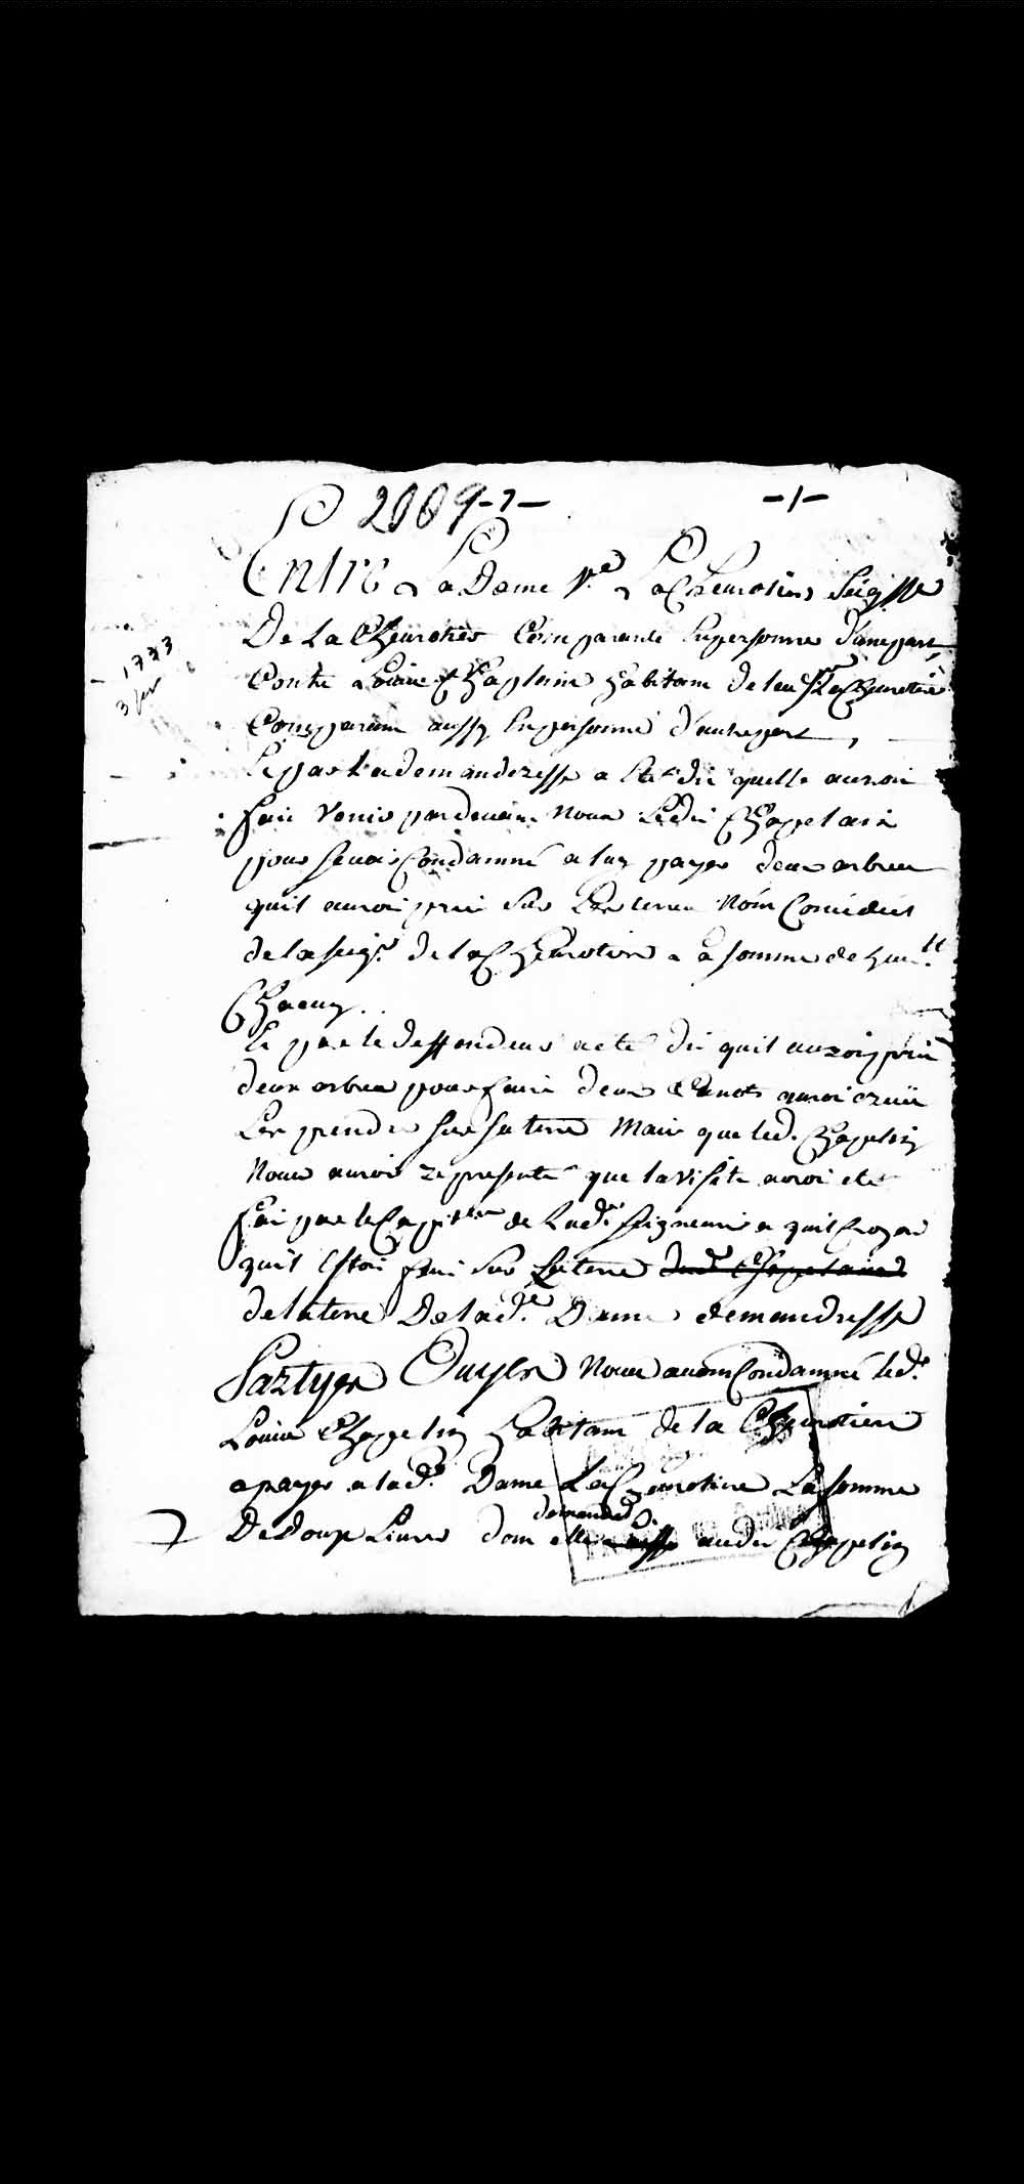 2009-7- -1-
Entre La Dame Ve La Chevrotiere Seig
De La Chevrotier Comparante En personne d'une part
1733
Contre Louis Chapelain habitant de lad La Chevrotiere
3 fev
Comparant aussy En personne d'autre part,
Et par la demanderesse a Eté dit quelle auroit
fait venir pardevant Nous Ledit Chapelain
pour se voir Condamné a luy payer deux arbres
quil auroit pris sur Les terres Non Concedées
de la seigr de la Chevrotiere a la somme de
Chacun
Et par le deffendeur a eté dit quil auroit pris
deux arbres pour faire deux Canots auroit crüe
Les prendre sur sa terre Mais que led. Chapelin
Nous auroit representé que la visite auroit eté
fait par le Capne de Lade Seigneurie a quil Croyoit
quil Estoit pris sur La terre dud Chapelain
de la terre De lade Dame demandresse
Partyes Ouyes Nous avons Condamné led.
Louis Chapelin habitant de la Chevrotiere
a payer a lade Dame La Chevrotiere La somme
demande
De Douze Livres dont elle audit Chapelin